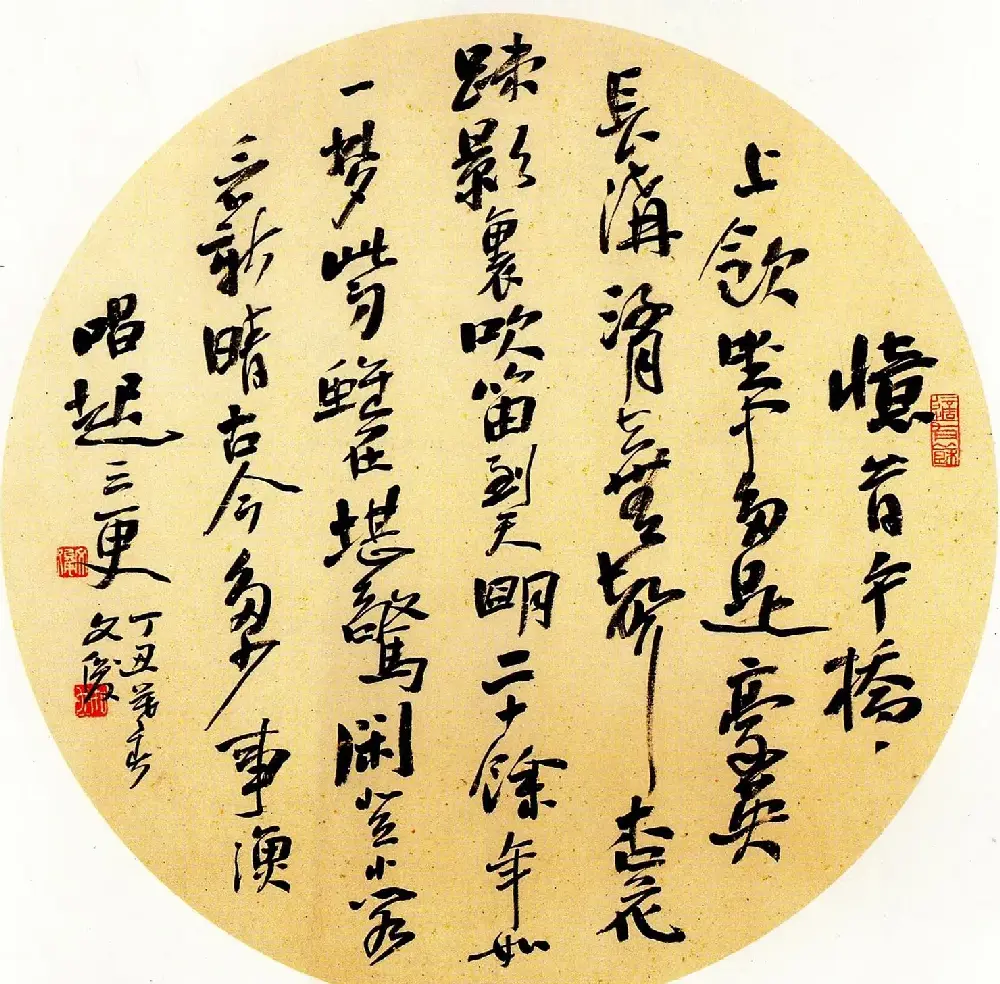 憶昔午橋〻
上飲坐中多是豪英
長溝流月去無聲杏花
疎影裏吹笛到天明二十餘年如
一夢此身雖在堪驚閑登小閣
看新晴古今多少事漁
唱起三更
丁丑莫春
文俊